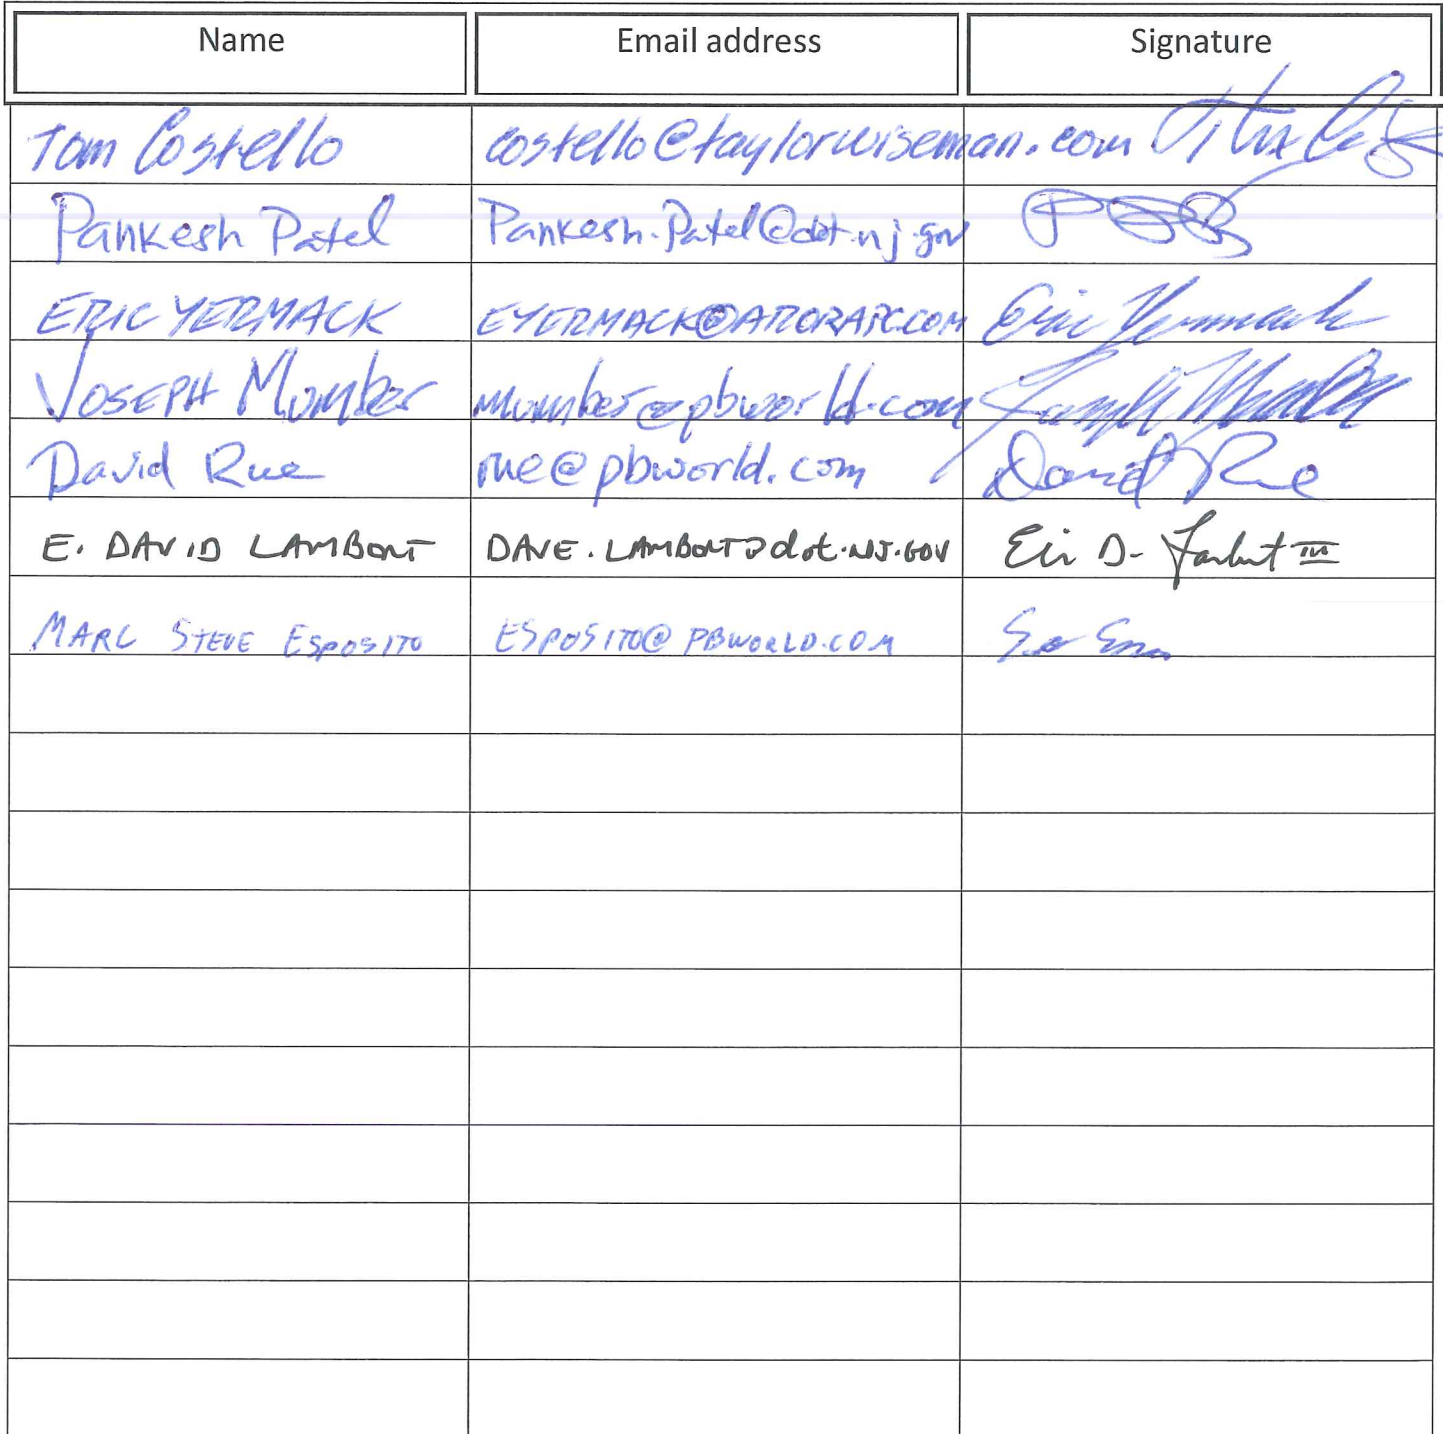 Name Email address Signature
Tom Costello costello@taylorwiseman.com
Pankesh Patel Pankesh.Patel@dot.nj.gov
ERIC YERMACK EYERMACK@ARORAPC.COM Eric Yermack
JOSEPH Mumber mumber@pbworld.com Joseph Mumber
David Rue rue@pbworld.com David Rue
E. DAVID LAMBERT DAVE.LAMBERT@dot.NJ.GOV Eric D. Lambert III
MARC STEVE ESPOSITO ESPOSITO@PBWORLD.COM